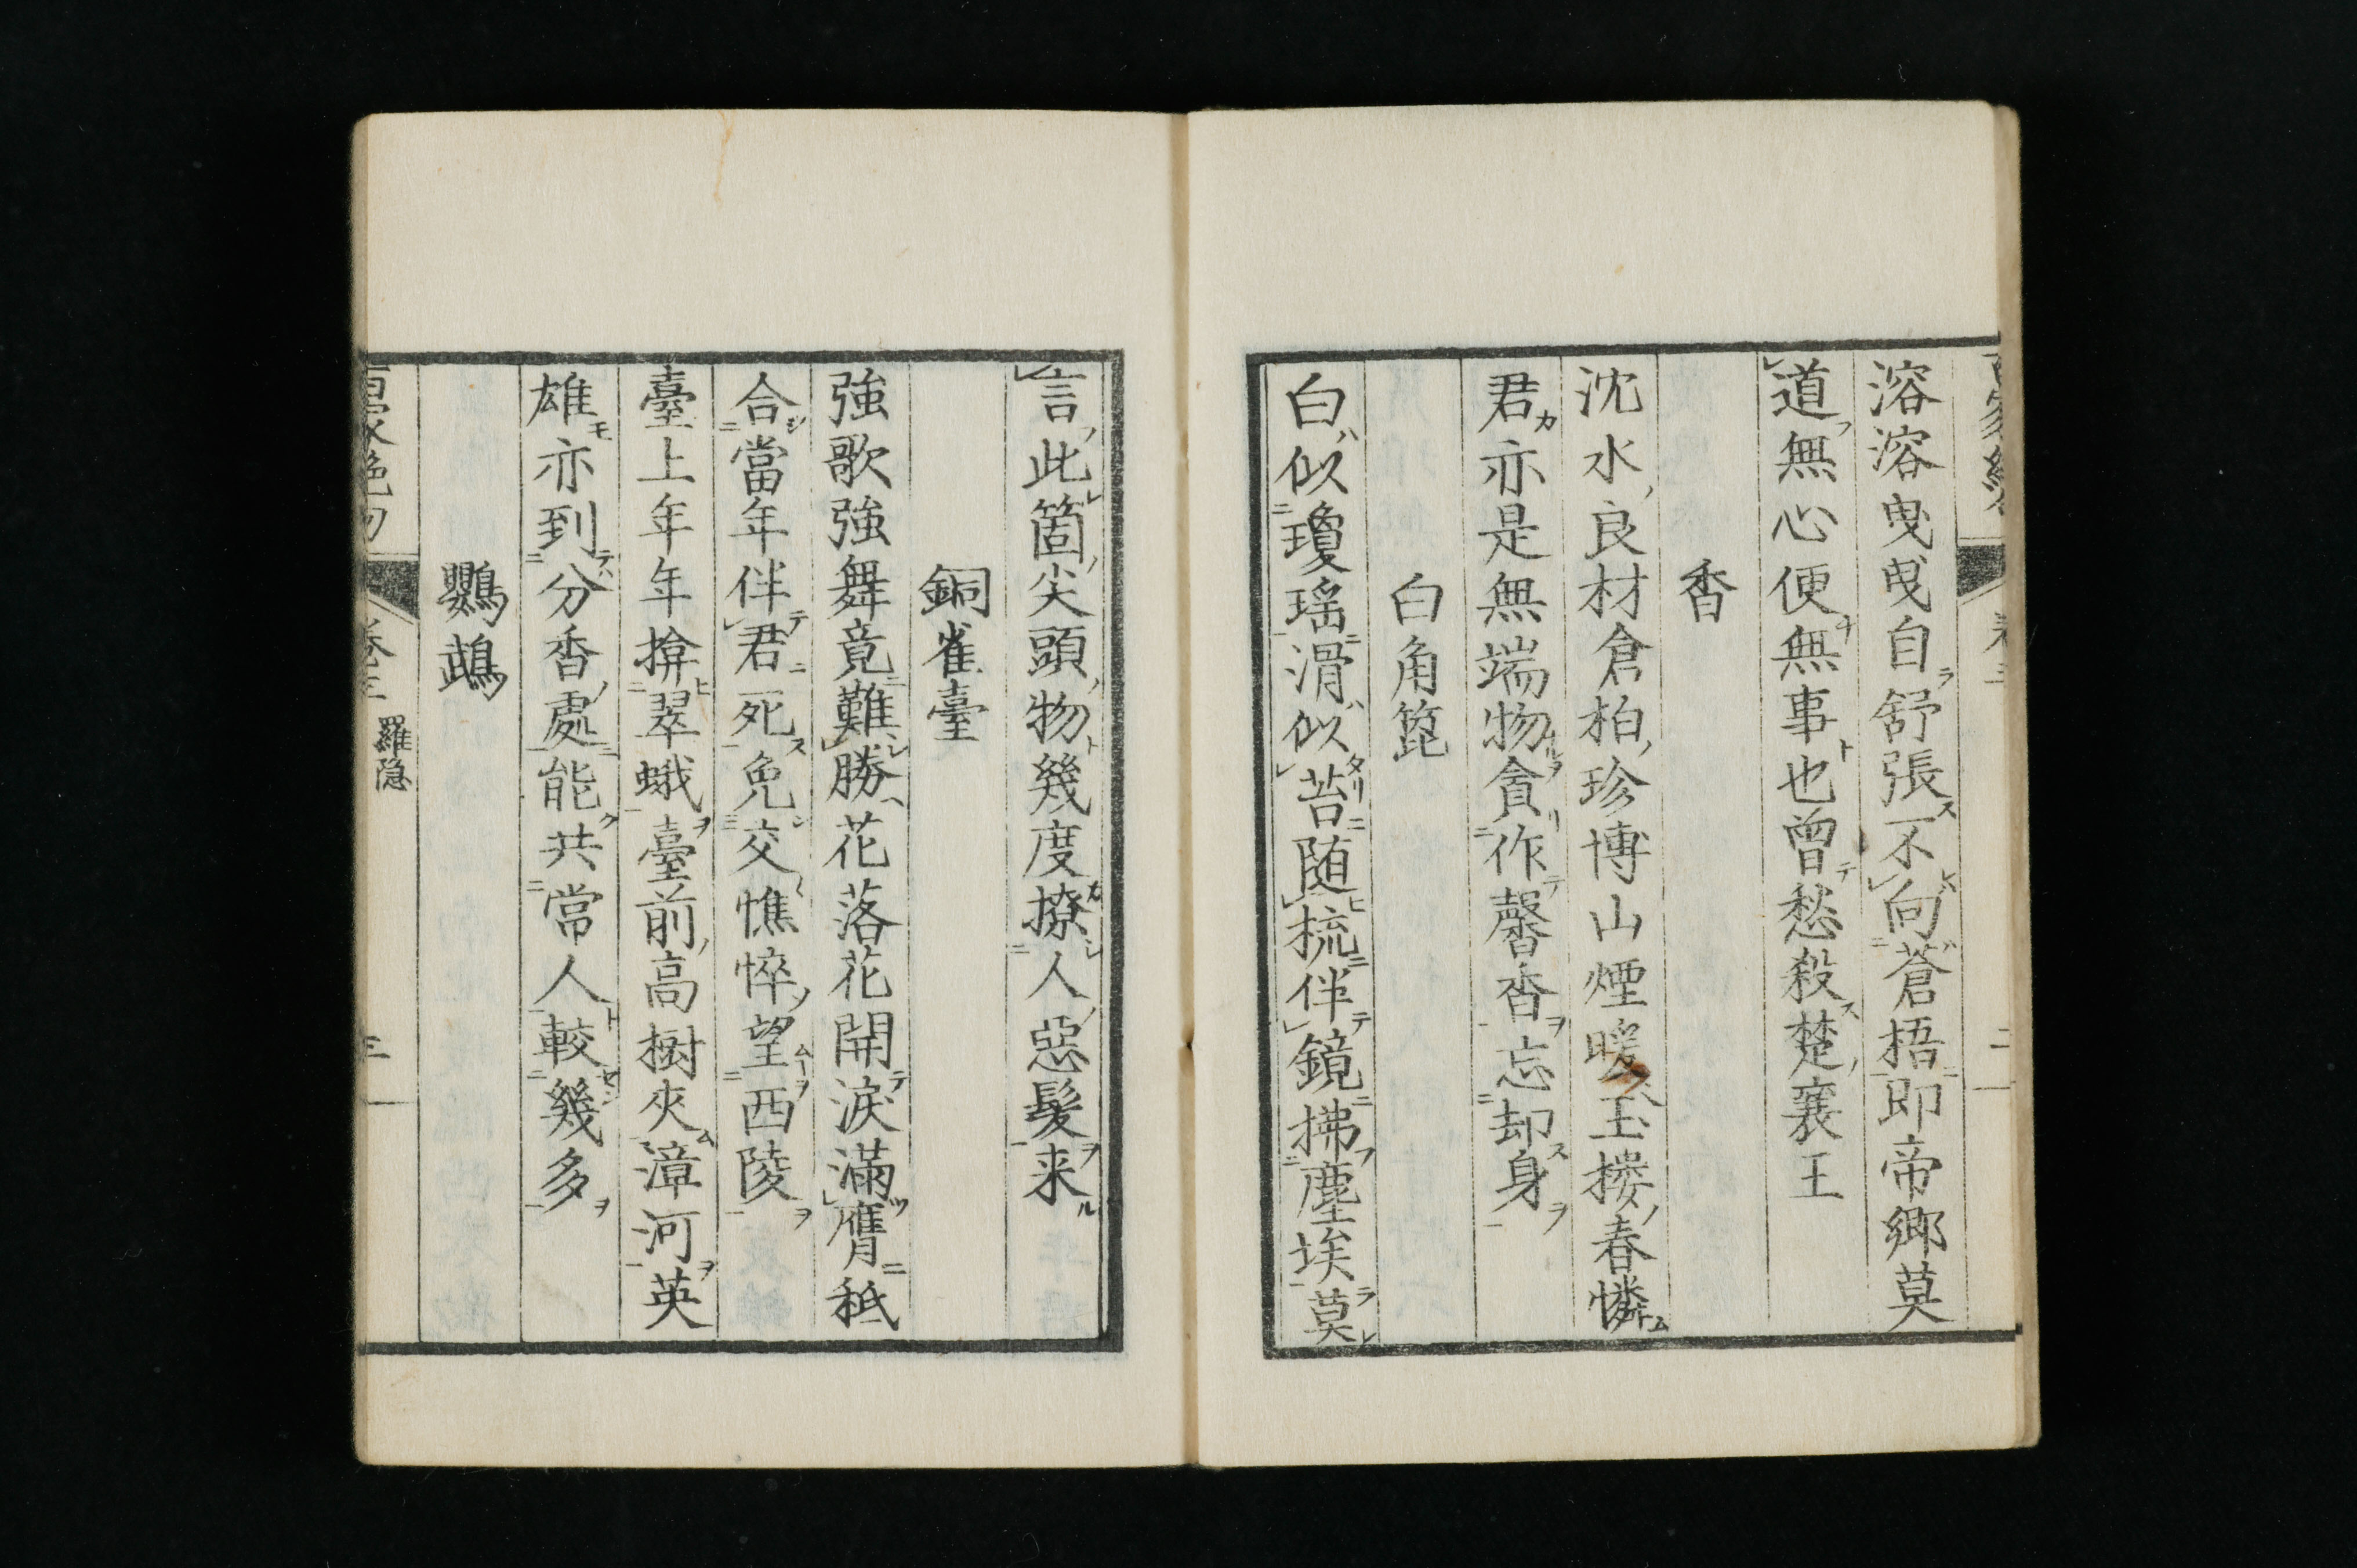 溶溶曳曳自舒張不向蒼梧即帝鄉莫
道無心便無事也曾愁殺楚襄王
香
沈水良材倉柏珍博山煙暖玉樓春憐
君亦是無端物貪作馨香忘却身
白角篦
白似瓊瑤滑似苔随梳伴鏡拂塵埃莫
言此箇尖頭物幾度撩人惡髮来
銅雀臺
強歌強舞竟難勝花落花開淚滿膺秪
合當年伴君死免交憔悴望西陵
臺上年年揜翠蛾臺前高樹夾漳河英
雄亦到分香處能共常人較幾多
鸚鵡
羅隐